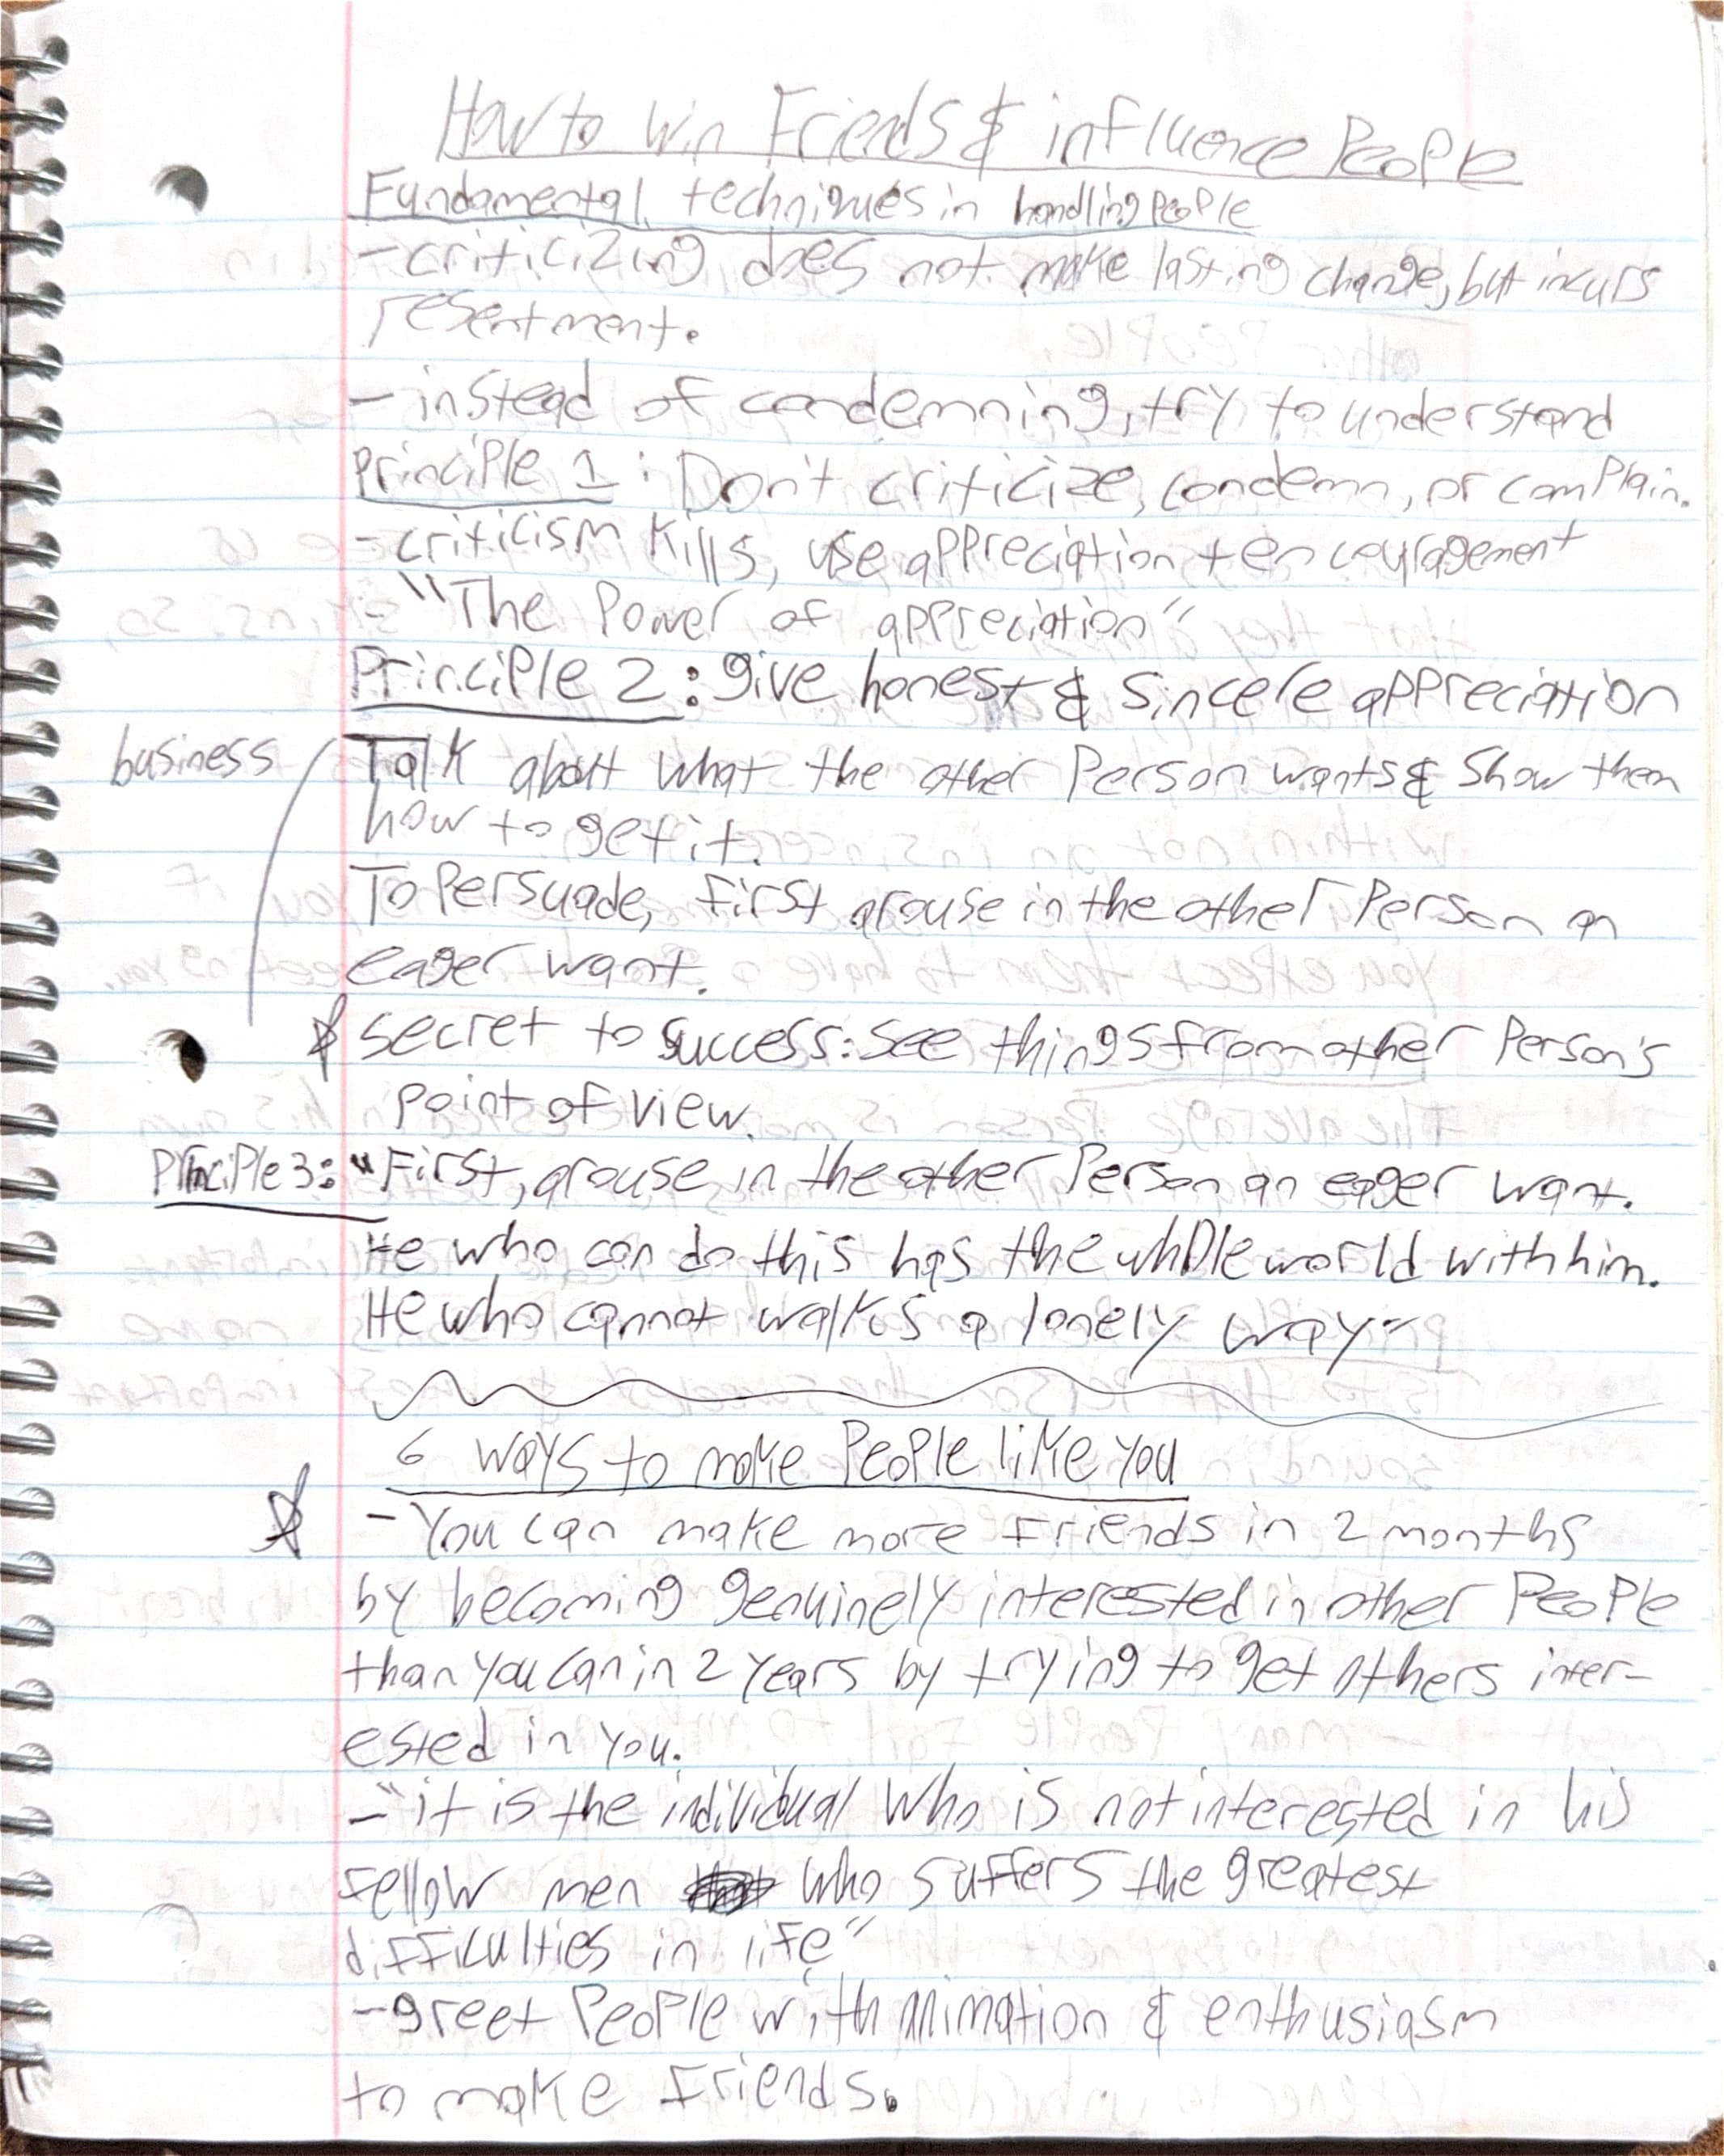 How to Win Friends & influence People
Fundamental techniques in handling people
- criticizing does not make lasting change, but incurs
resentment.
- instead of condemning, try to understand
principle 1: Don't criticize, condemn, or complain.
- criticism kills, use appreciation + encouragement
- "The Power of appreciation"
Principle 2: give honest & sincere appreciation
business Talk about what the other Person wants & show them
how to get it.
To Persuade, first arouse in the other Person an
eager want.
secret to success: see things from other Person's
point of view.
Principle 3: "First, arouse in the other Person an eager want.
He who can do this has the whole world with him.
He who cannot walks a lonely way"
6 ways to make People like you
- You can make more friends in 2 months
by becoming genuinely interested in other People
than you can in 2 years by trying to get others inter-
ested in you.
- "it is the individual who is not interested in his
fellow men who suffers the greatest
difficulties in life"
- greet People with animation & enthusiasm
to make friends.